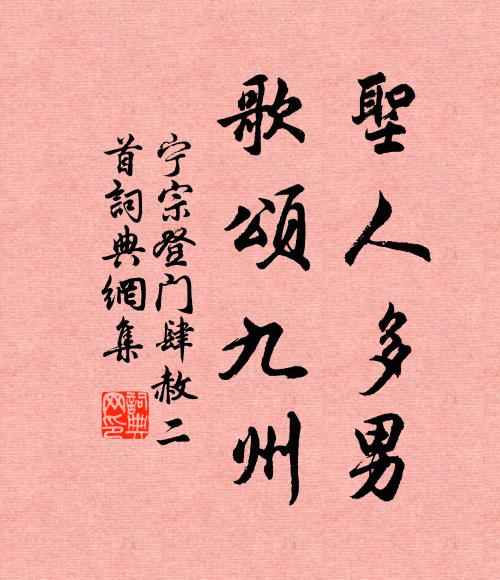 聖人多男
歌頌九州
宁宗登门肆赦二
首詞典網集
詞典
网印